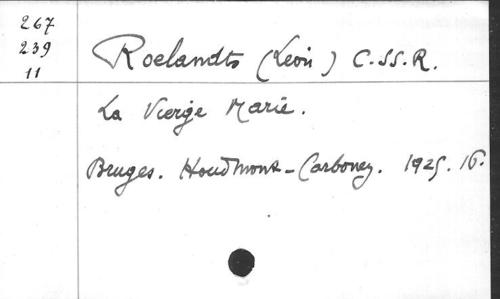 267
239
11
Roelandts (Léon) C.SS.R.
La Vierge Marie.
Bruges. Houdmont-Carbonez. 1925. 16.